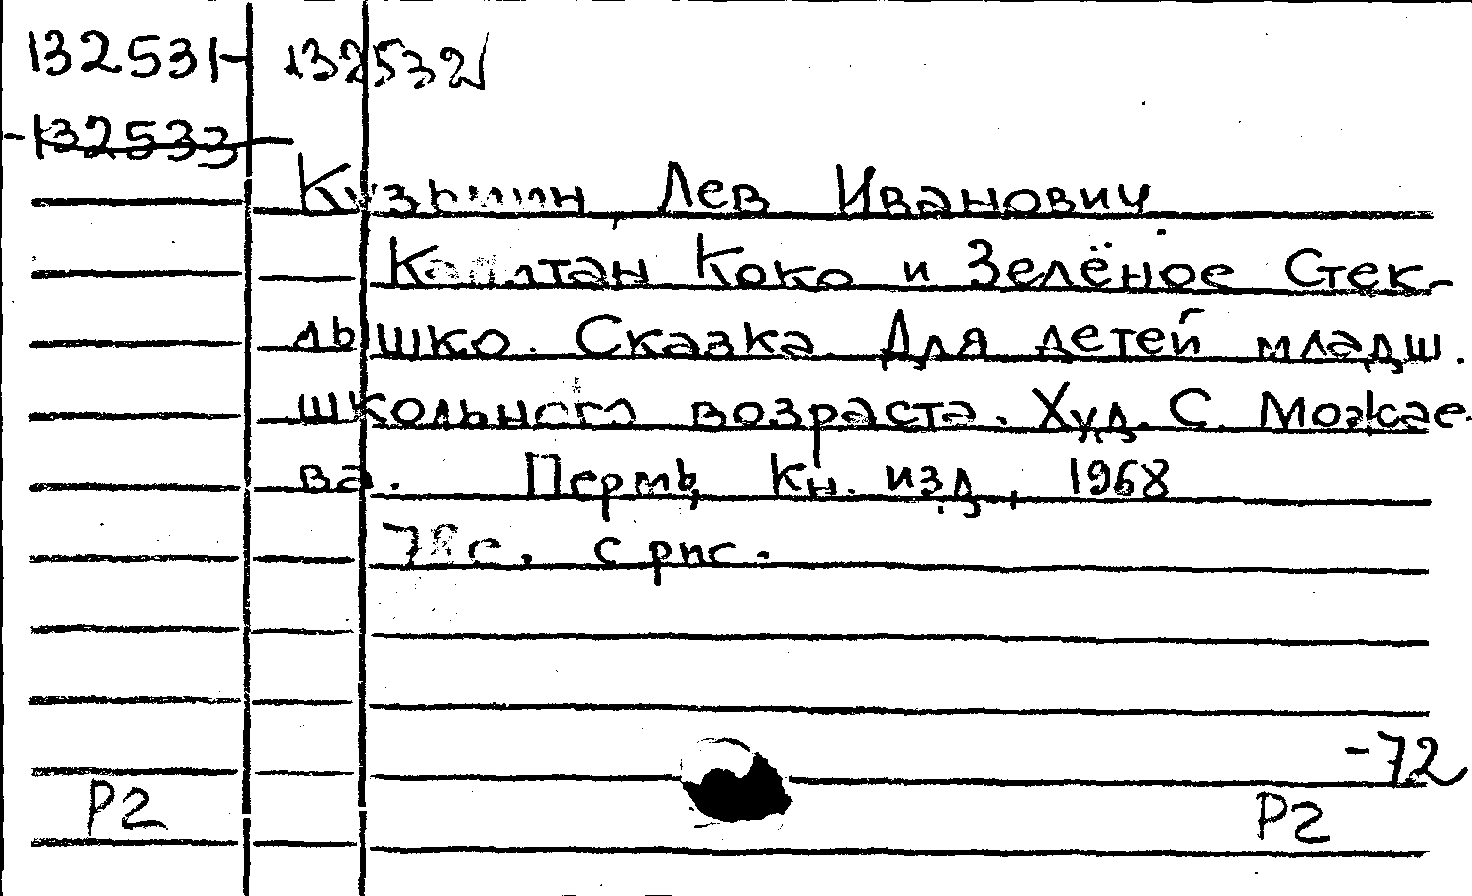 132531- 132532
-132533
Кузьмин, Лев Иванович
Капитан Коко и Зелёное Стек-
лышко. Сказка. Для детей младш.
школьного возраста. Худ. С. Можае-
ва. Пермь, Кн. изд., 1968
78 с. с рис.
-72
Р2 Р2